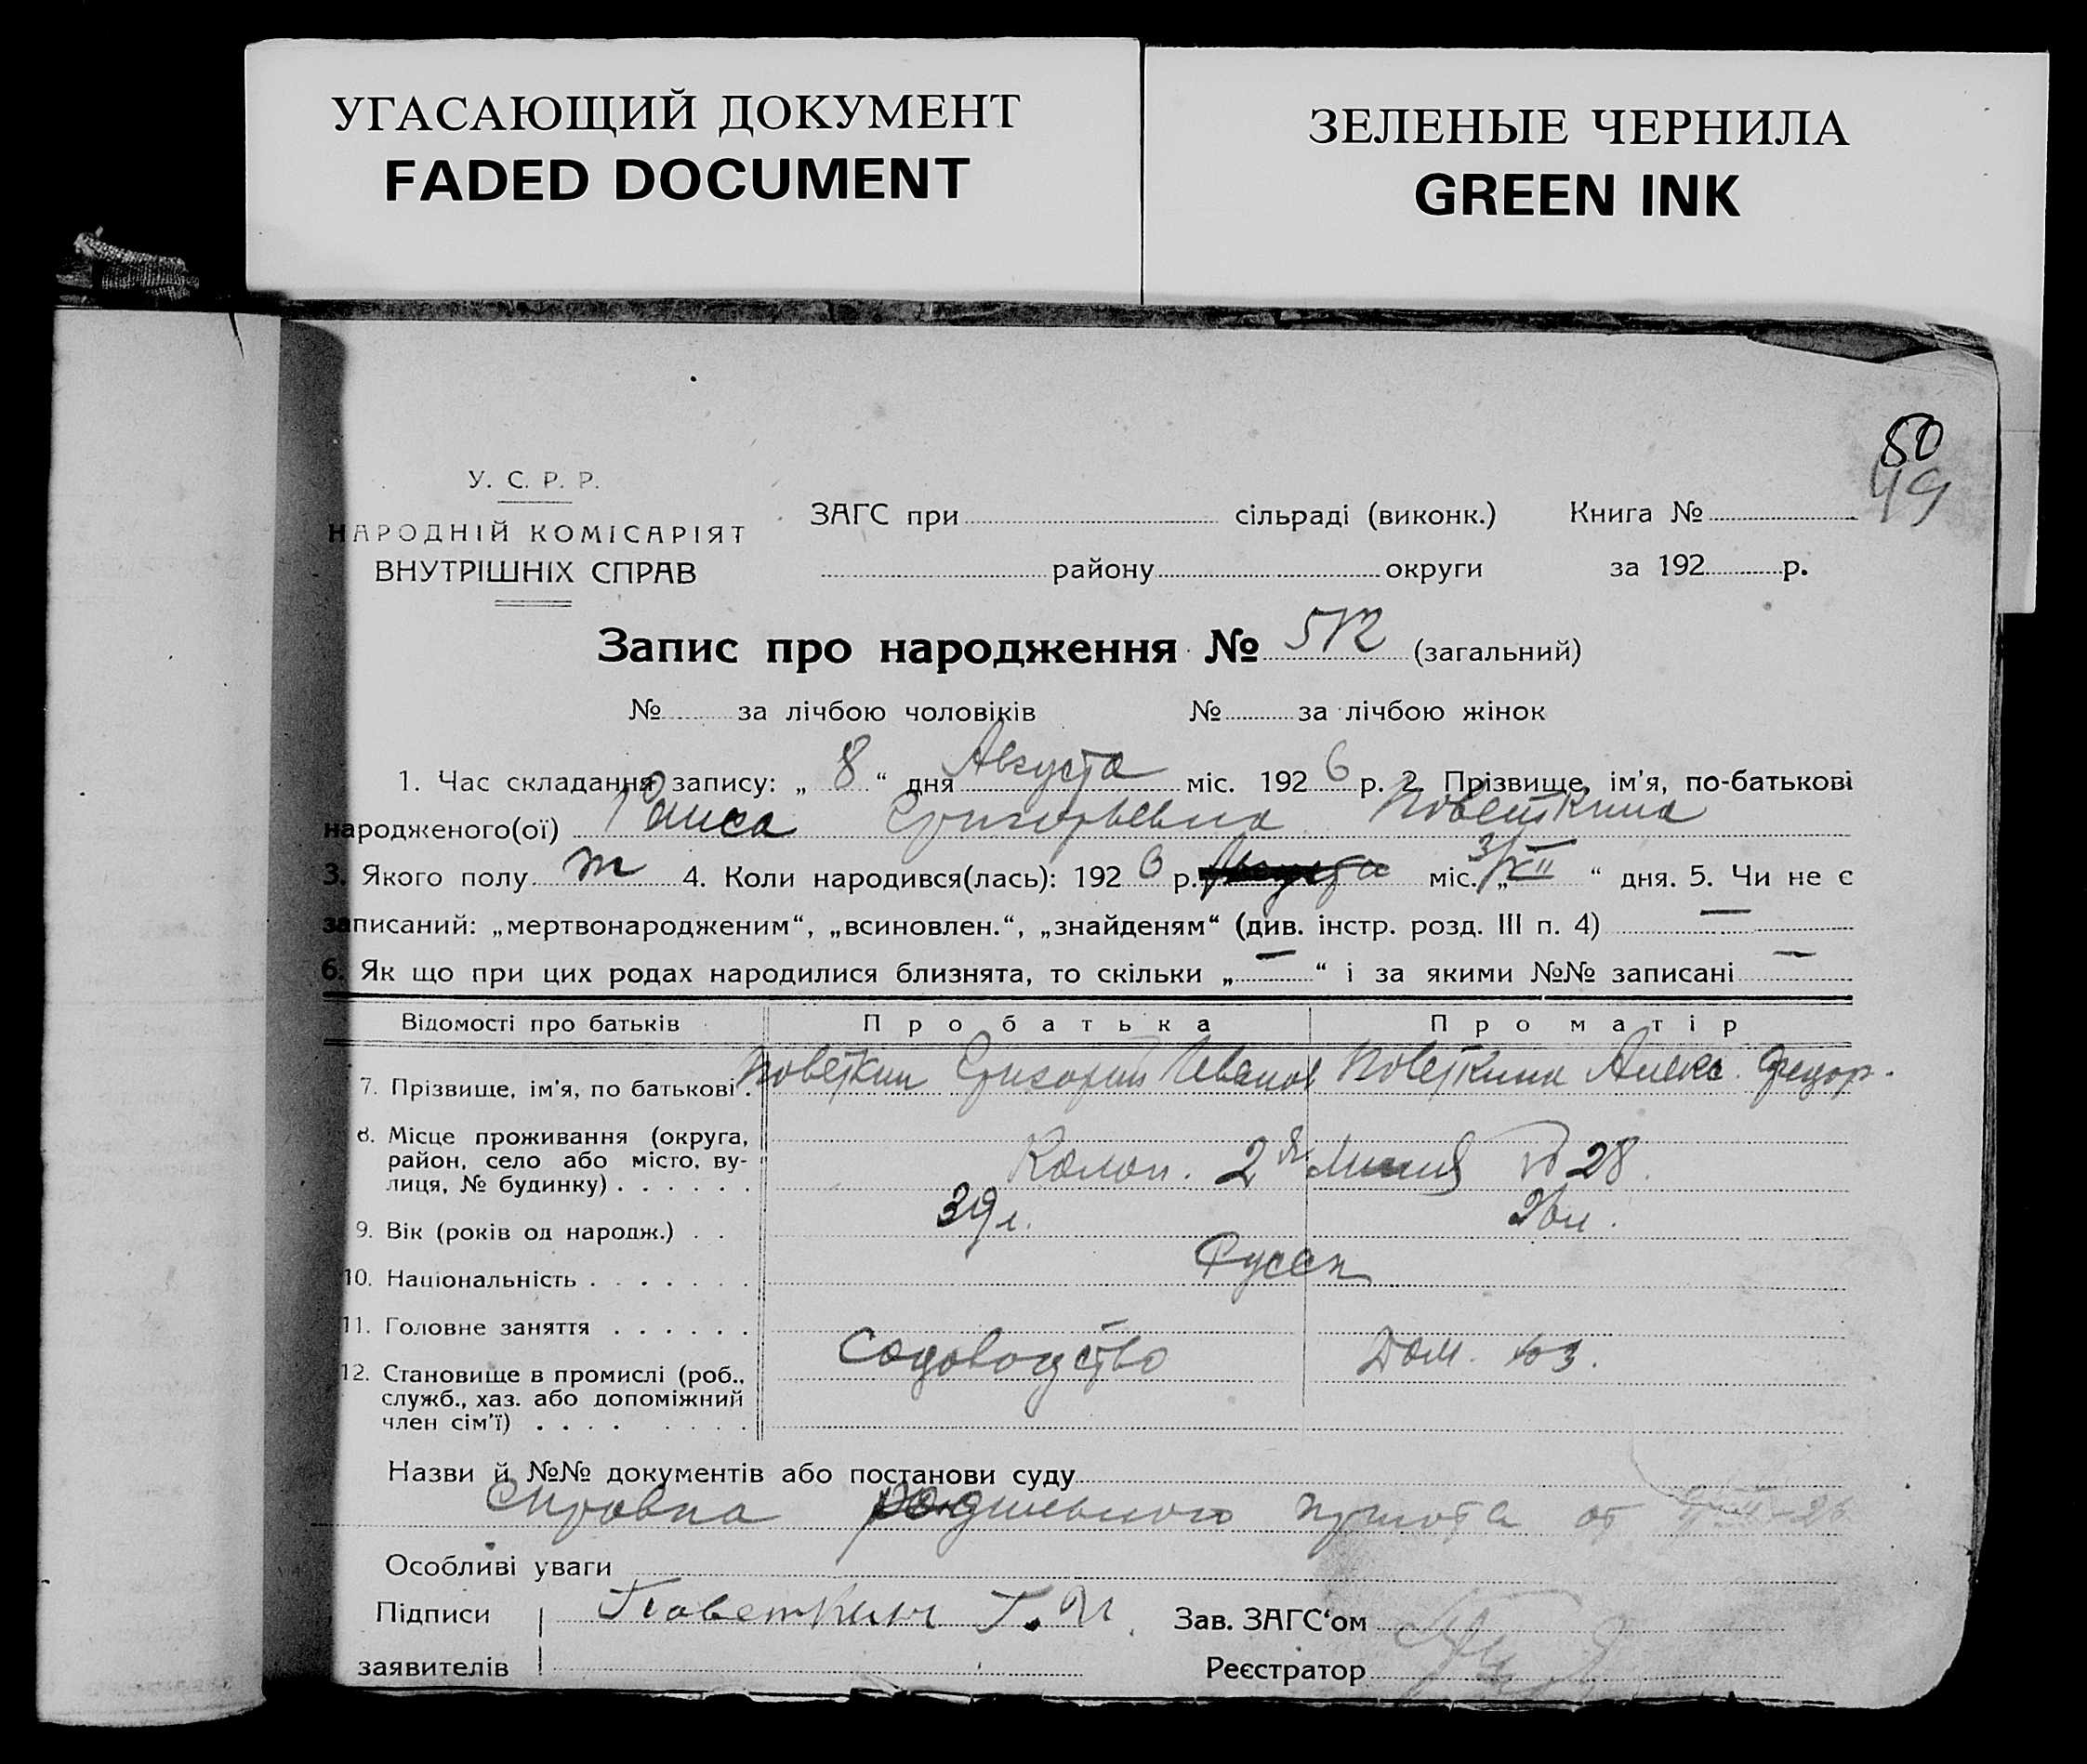 УГАСАЮЩИЙ ДОКУМЕНТ
FADED DOCUMENT
ЗЕЛЕНЫЕ ЧЕРНИЛА
GREEN INK
50
49
У. С. Р. Р.
НАРОДНІЙ КОМІСАРІЯТ
ВНУТРІШНІХ СПРАВ
ЗАГС при сільраді (виконк.) Книга №
району округи за 192 р.
Запис про народження № 512 (загальний)
№ за лічбою чоловіків № за лічбою жінок
1. Час складання запису: „ 8 “ дня Августа міс. 1926 р. 2. Прізвище, ім'я, по-батькові
народженого(ої) Раиса Григорьевна Поветкина
3. Якого полу 4. Коли народився(лась): 1926 р. Августа міс. „ “ дня. 5. Чи не є
записаний: „мертвонародженим“, „всиновлен.“, „знайденям“ (див. інстр. розд. III п. 4) —
6. Як що при цих родах народилися близнята, то скільки „ — “ і за якими №№ записані —
Відомості про батьків Про батька Про матір
7. Прізвище, ім'я, по батькові . Поветкин Григорий Иванов Поветкина Алекс. Федор.
8. Місце проживання (округа,
район, село або місто, ву-
лиця, № будинку) . . . . . . 2я линия № 28
9. Вік (років од народж.) . . 39 л.
10. Національність . . . . . . . Русск
11. Головне заняття . . . . . .
Садоводство Дом. хоз.
12. Становище в промислі (роб.,
служб., хаз. або допоміжний
член сім'ї) . . . . . . . .
Назви й №№ документів або постанови суду
Справка родильного приюта от
Особливі уваги
Підписи Поветкин Г. И Зав. ЗАГС'ом
заявителів Реєстратор